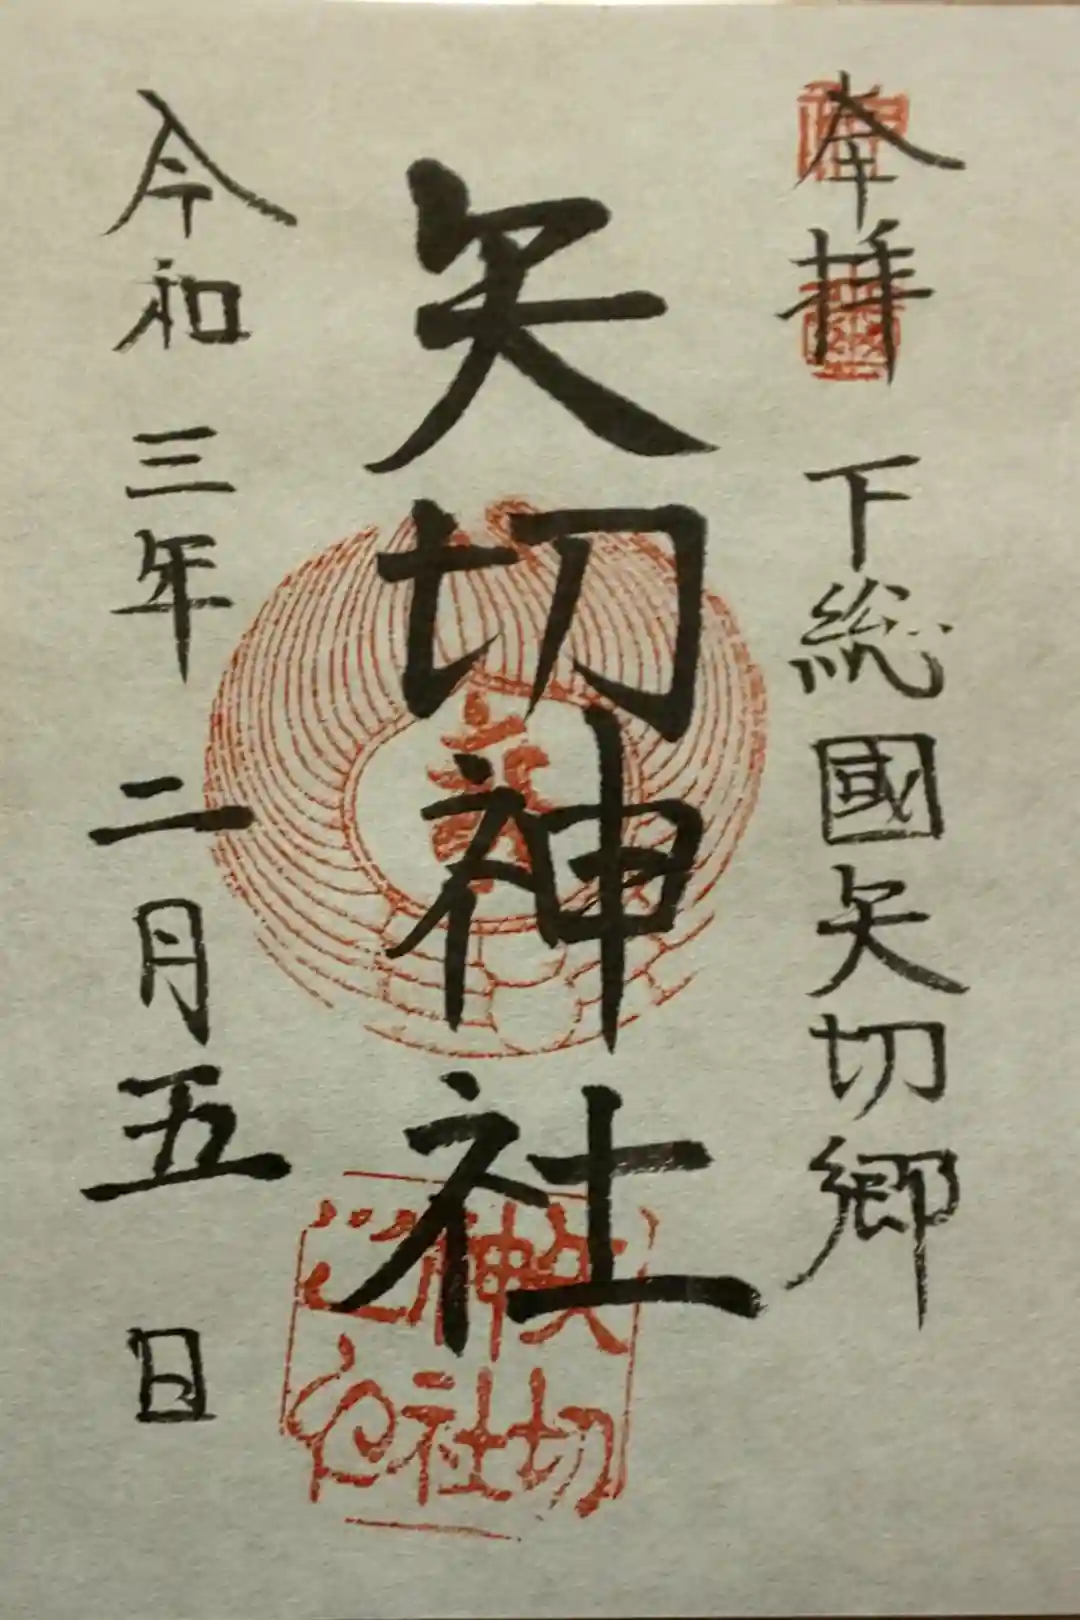 奉拝 下総國矢切郷
矢切神社
令和三年二月五日
矢切
神社
之印